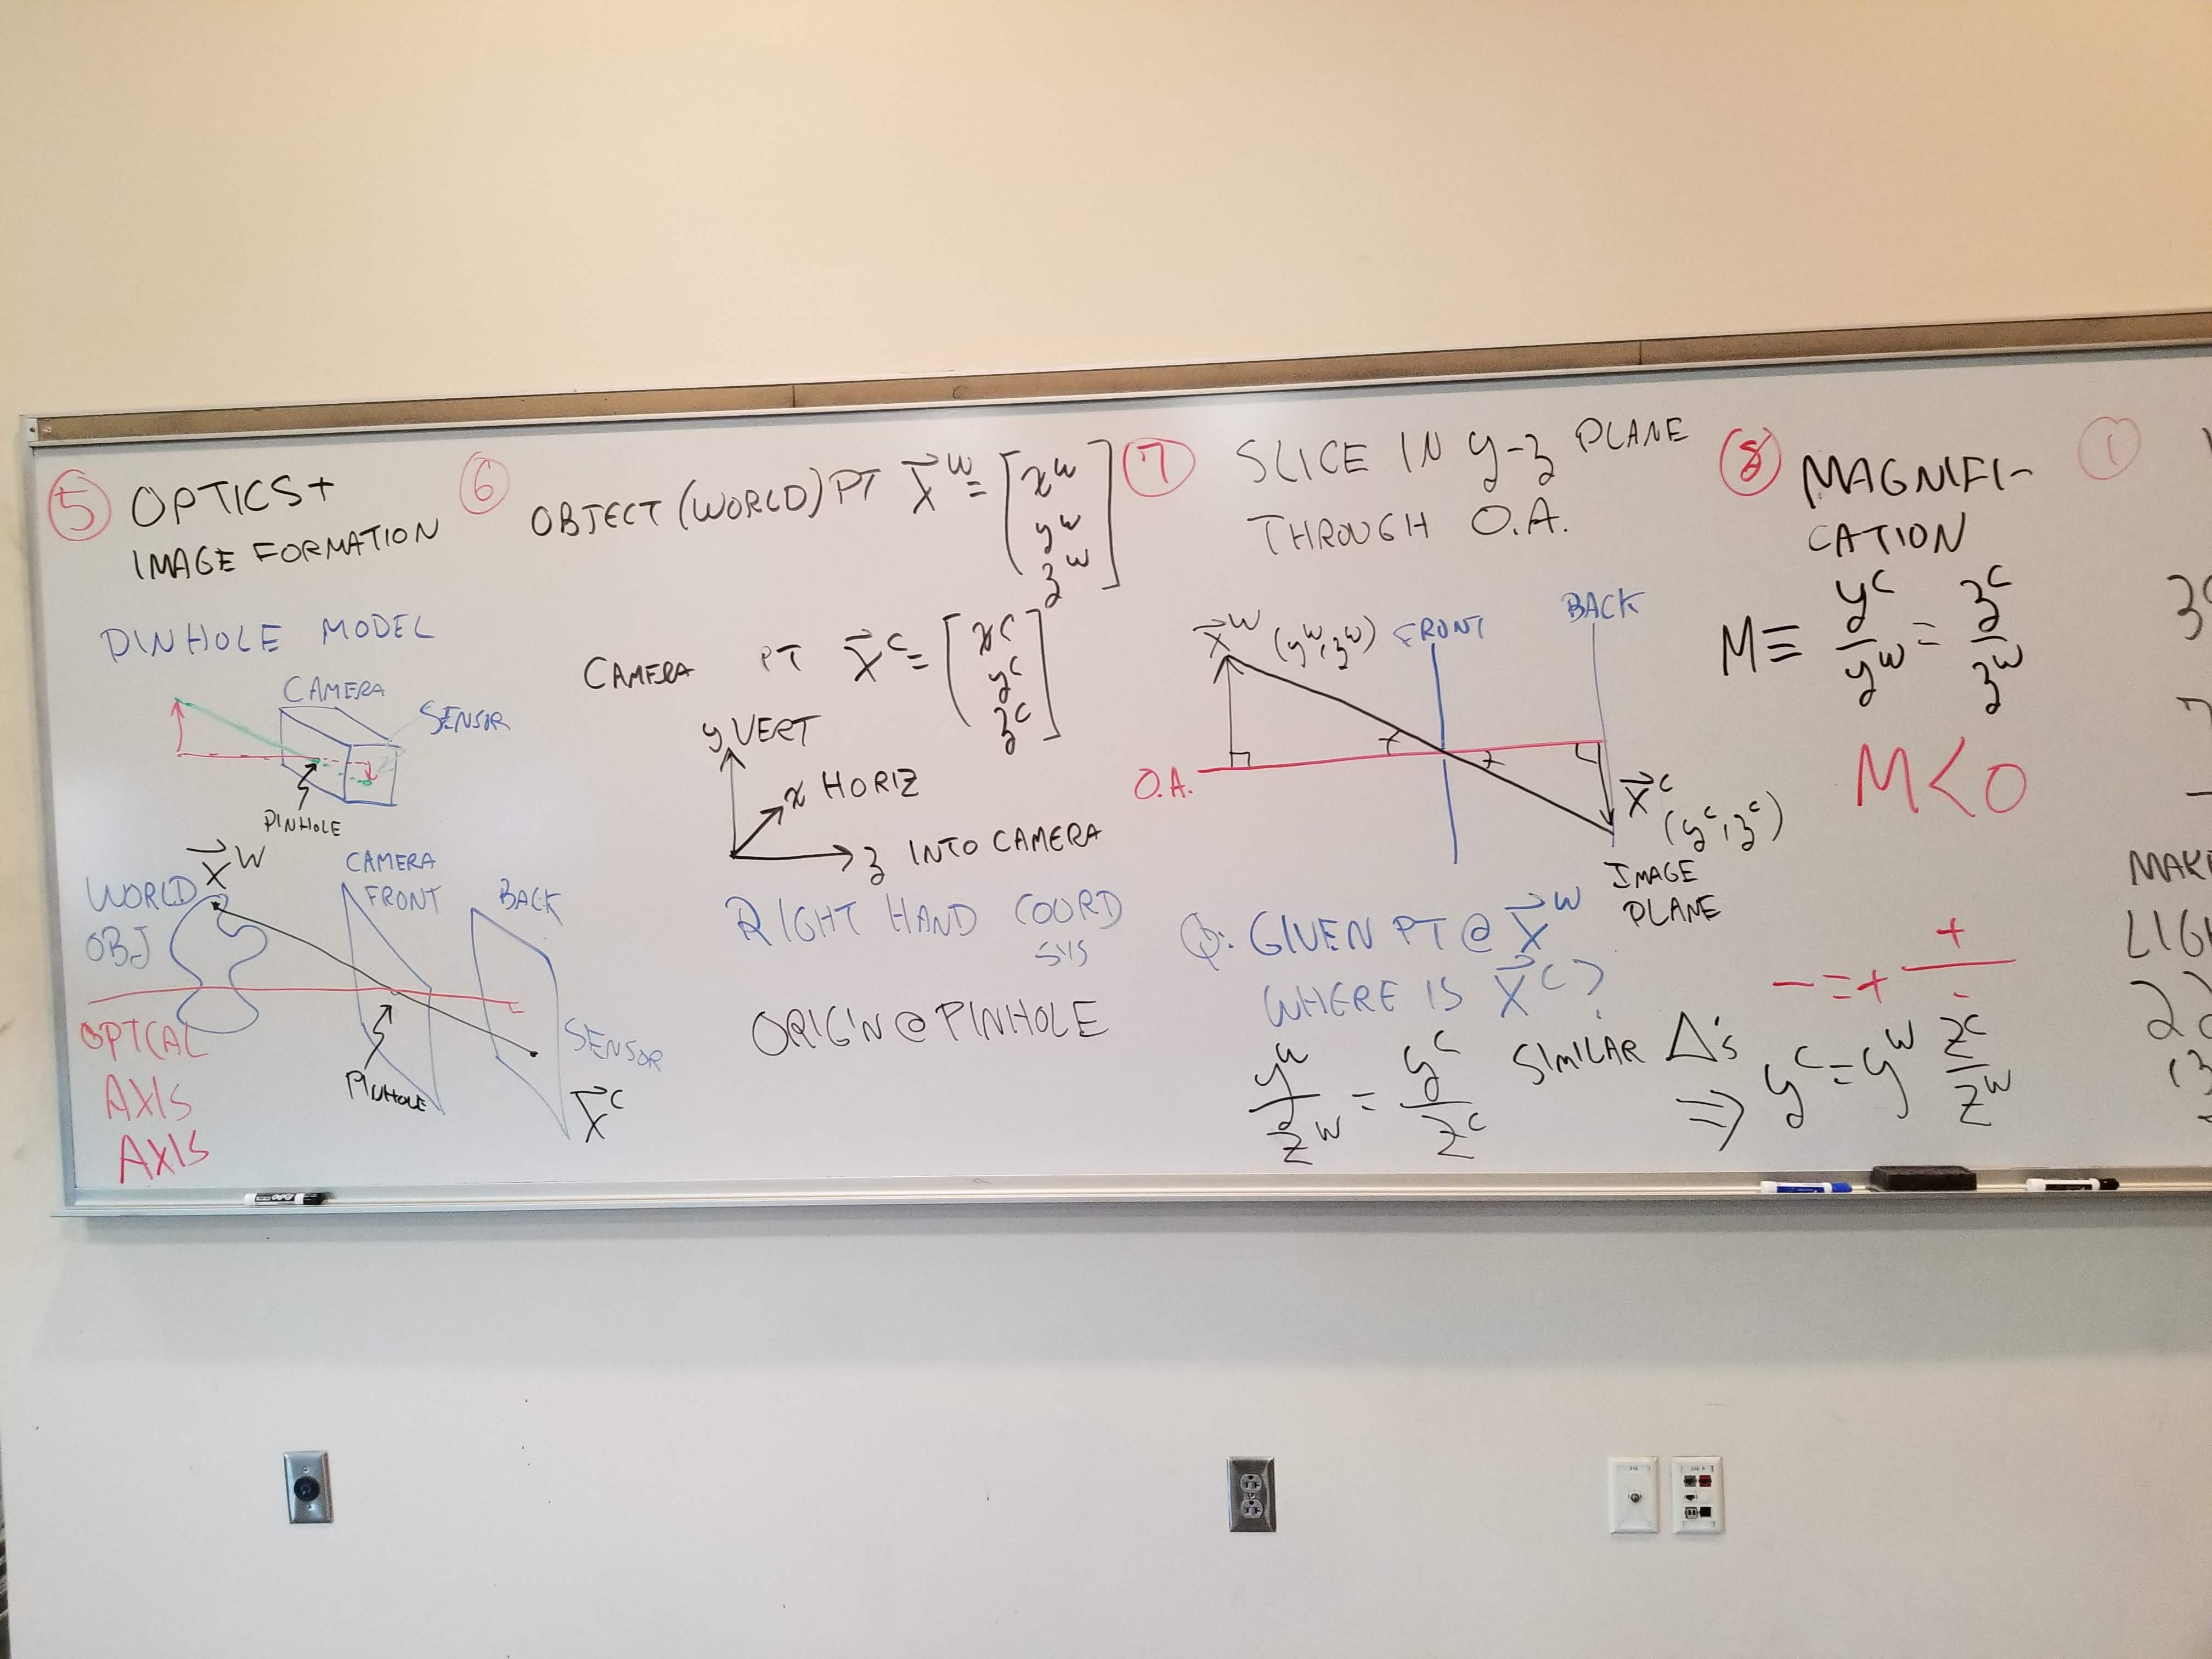 ⑤ OPTICS +
IMAGE FORMATION
PINHOLE MODEL
CAMERA
SENSOR
PINHOLE
X⃗ᵂ
WORLD
OBJ
CAMERA
FRONT
BACK
OPTCAL
AXIS
AXIS
PINHOLE
SENSOR
X⃗ᶜ
⑥ OBJECT (WORLD) PT X⃗ᵂ = [xᵂ
yᵂ
zᵂ]
CAMERA PT X⃗ᶜ = [xᶜ
yᶜ
zᶜ]
y VERT
x HORIZ
z INTO CAMERA
RIGHT HAND COORD
SYS
ORIGIN @ PINHOLE
⑦ SLICE IN y-z PLANE
THROUGH O.A.
X⃗ᵂ (yᵂ, zᵂ)
FRONT
BACK
O.A.
X⃗ᶜ
(yᶜ, zᶜ)
IMAGE
PLANE
Q: GIVEN PT @ X⃗ᵂ
WHERE IS X⃗ᶜ?
yᵂ/zᵂ = yᶜ/zᶜ SIMILAR Δ's
⑧ MAGNIFI-
CATION
M ≡ yᶜ/yᵂ = zᶜ/zᵂ
M < 0
- = + +/-
⇒ yᶜ = yᵂ zᶜ/zᵂ
①
MAK
LIG